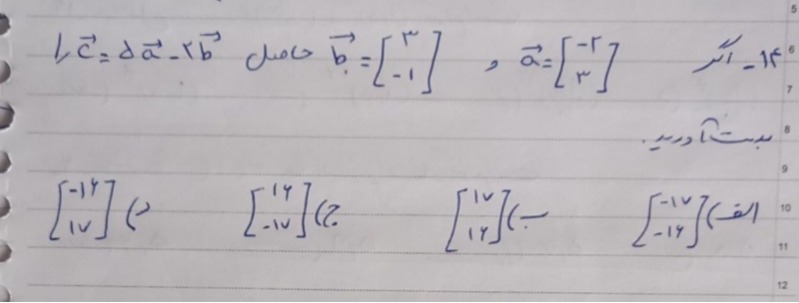 ۱۴- اگر a⃗ = [-۲ ۳] و b⃗ = [۳ -۱] حاصل c⃗ = ۵a⃗ - ۲b⃗ را
بدست آورید.
الف) [-۱۷ -۱۶] ب) [۱۷ ۱۶] ج) [۱۶ -۱۷] د) [-۱۶ ۱۷]
5
6
7
8
9
10
11
12